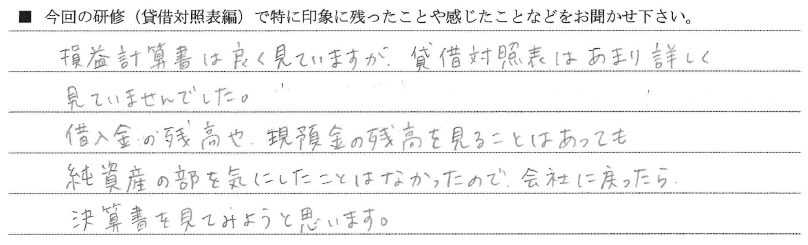 ■ 今回の研修（貸借対照表編）で特に印象に残ったことや感じたことなどをお聞かせ下さい。
損益計算書は良く見ていますが、貸借対照表はあまり詳しく
見ていませんでした。
借入金の残高や、現預金の残高を見ることはあっても
純資産の部を気にしたことはなかったので、会社に戻ったら、
決算書を見てみようと思います。